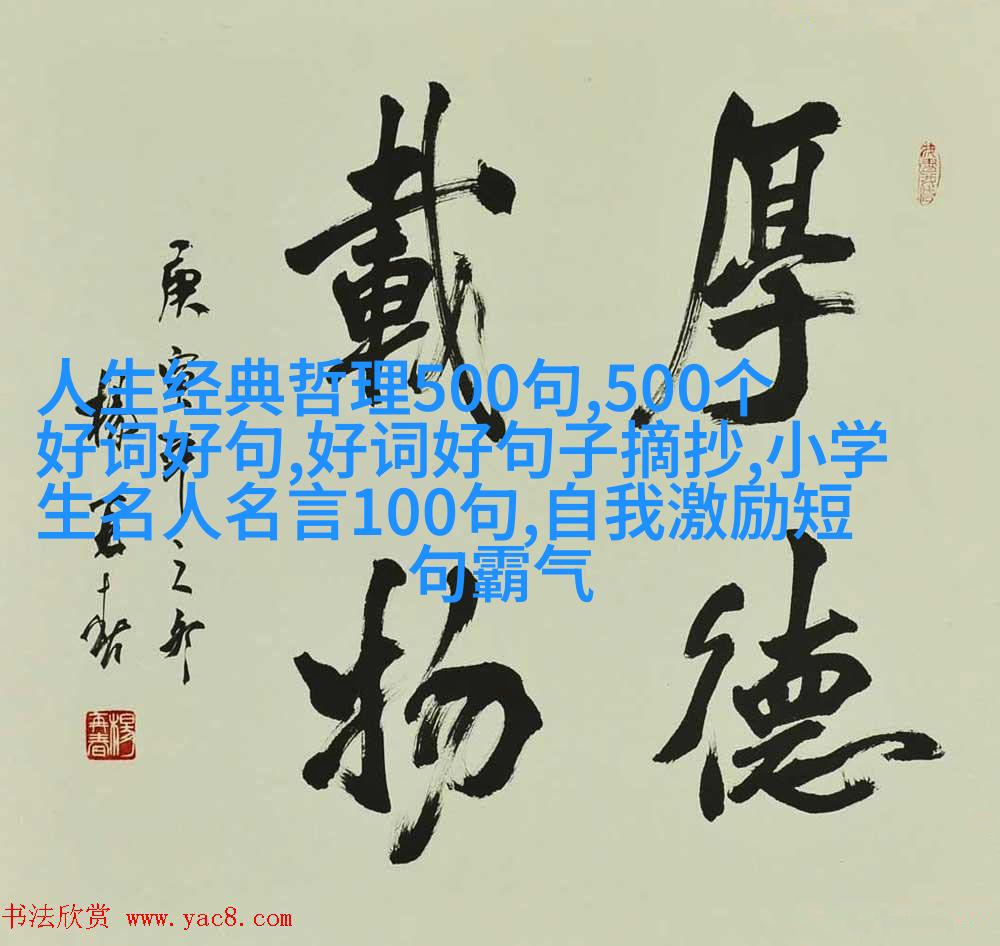 厚德
載物
庚寅年之卯
楊再春
楊再春
人生经典哲理500句,500个
好词好句,好词好句子摘抄,小学
生名人名言100句,自我激励短
句霸气
书法欣赏 www.yac8.com